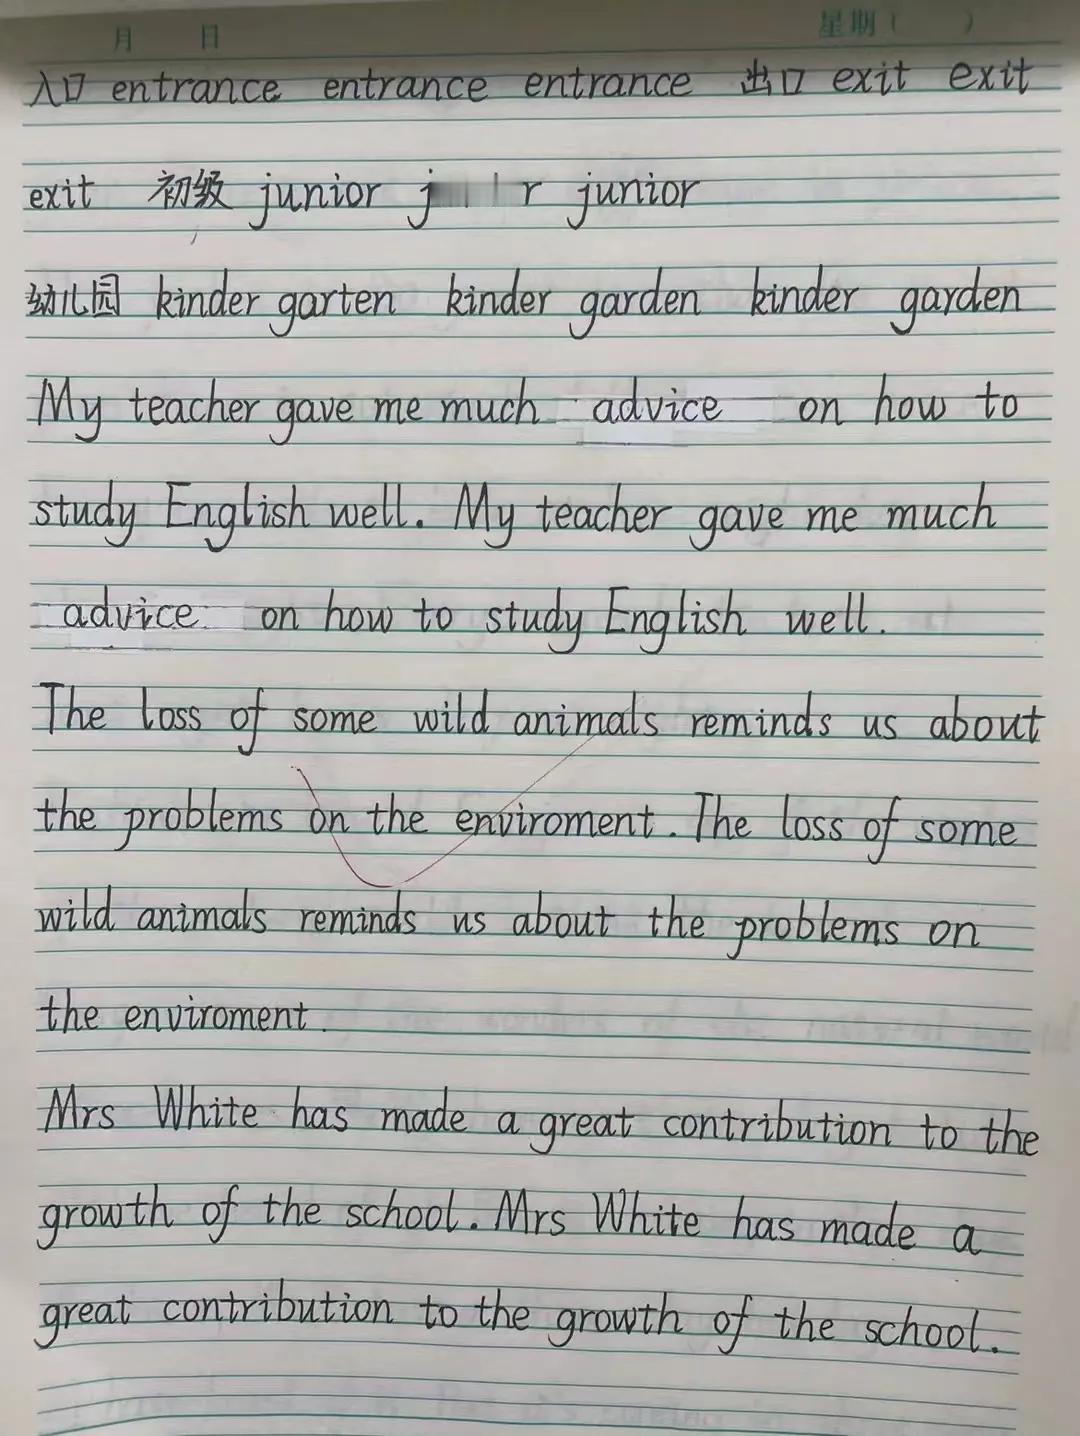 月 日 星期( )
入口 entrance entrance entrance 出口 exit exit
exit 初级 junior junior
幼儿园 kinder garten kinder garden kinder garden
My teacher gave me much advice on how to
study English well. My teacher gave me much
advice on how to study English well.
The loss of some wild animals reminds us about
the problems on the enviroment. The loss of some
wild animals reminds us about the problems on
the enviroment.
Mrs White has made a great contribution to the
growth of the school. Mrs White has made a
great contribution to the growth of the school.